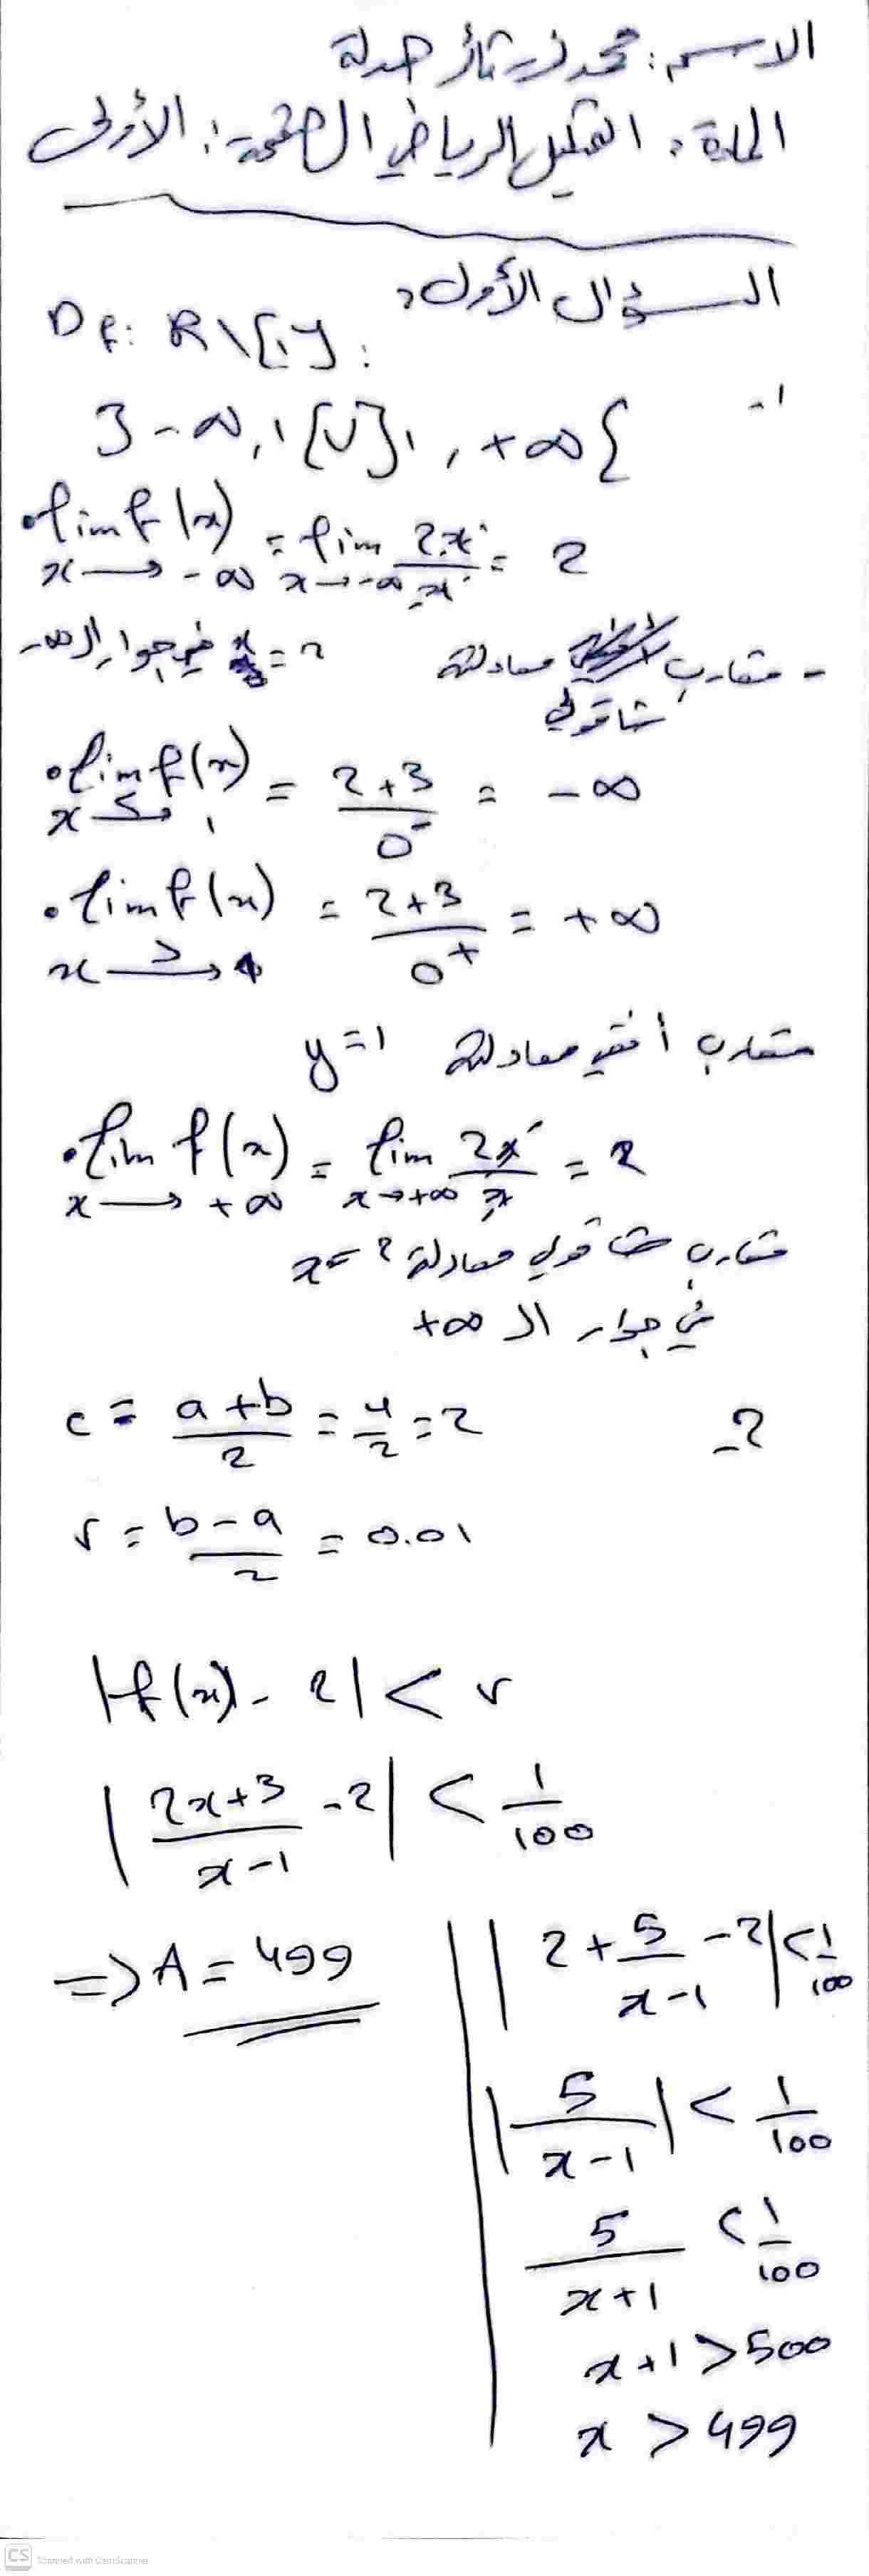 الاسم: محمد نزير تمار جدلة
المادة: التحليل الرياضي الصفحة: الأولى
السؤال الأول:
Df: R\{1}:
1-
]-∞, 1[U]1, +∞[
• lim f(x) x→-∞ = lim x→-∞ 2x/x = 2
- مقارب شاقولي معادلته x = 2 في جوار الـ ∞-
• lim f(x) x→< 1 = 2+3/0⁻ = -∞
• lim f(x) x→> 1 = 2+3/0⁺ = +∞
مقارب أفقي معادلته y=1
• lim f(x) x→+∞ = lim x→+∞ 2x/x = 2
مقارب شاقولي معادلة x=2
في جوار الـ ∞+
2-
c = a+b/2 = 4/2 = 2
r = b-a/2 = 0.01
|f(x) - 2| < r
|2x+3/x-1 - 2| < 1/100
|2 + 5/x-1 - 2| < 1/100
|5/x-1| < 1/100
5/x+1 < 1/100
x+1 > 500
x > 499
=> A = 499
CS Scanned with CamScanner